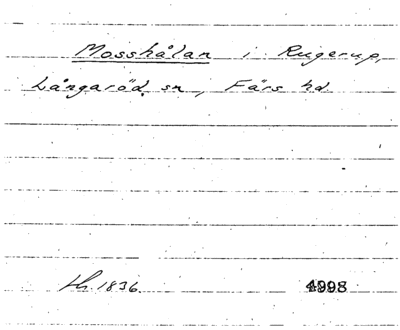 Mosshålan i Rugerup,
Långaröd sn, Färs hd
Lh. 1836.
4998